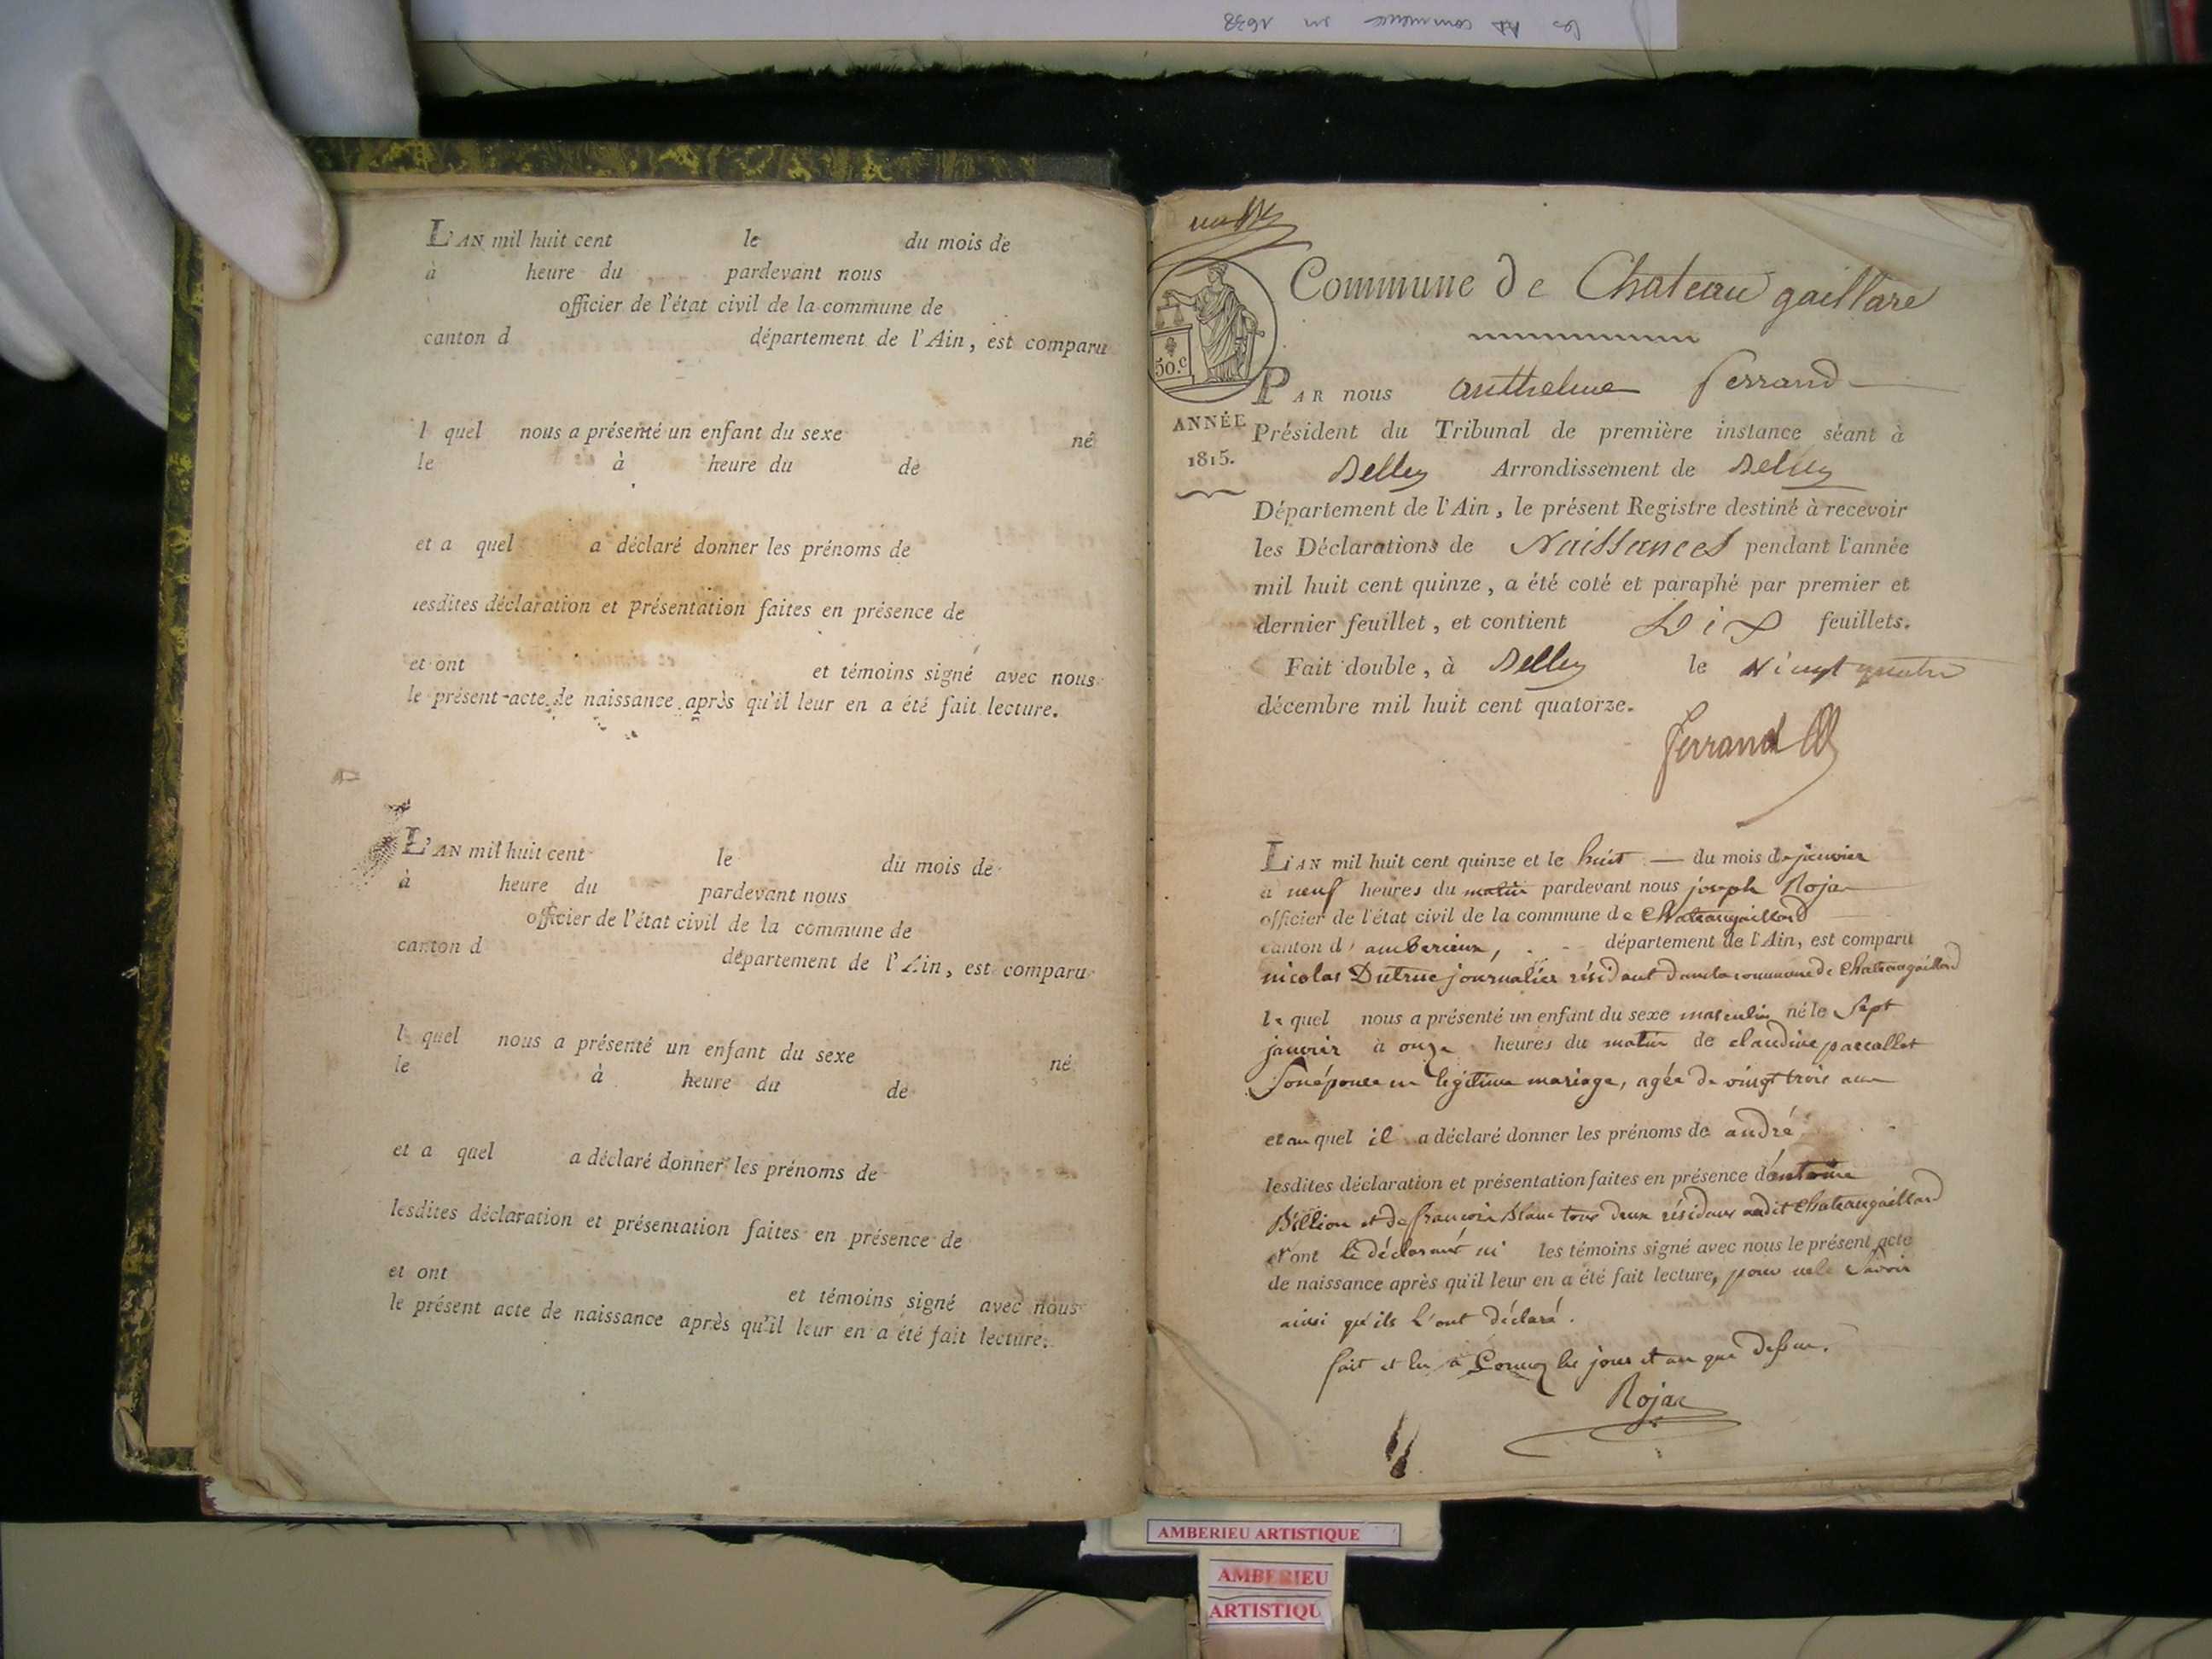 les commence en 1638
L'AN mil huit cent le du mois de
à heure du pardevant nous
officier de l'état civil de la commune de
canton d département de l'Ain, est comparu
l quel nous a présenté un enfant du sexe né
le à heure du de
et a quel a déclaré donner les prénoms de
lesdites déclaration et présentation faites en présence de
et ont et témoins signé avec nous
le présent acte de naissance après qu'il leur en a été fait lecture.
L'AN mil huit cent le du mois de
à heure du pardevant nous
officier de l'état civil de la commune de
canton d département de l'Ain, est comparu
l quel nous a présenté un enfant du sexe né
le à heure du de
et a quel a déclaré donner les prénoms de
lesdites déclaration et présentation faites en présence de
et ont et témoins signé avec nous
le présent acte de naissance après qu'il leur en a été fait lecture.
50.c
ANNÉE
1815.
Commune de Chateau gaillard
PAR nous anthelme ferrand
Président du Tribunal de première instance séant à
Belley Arrondissement de Belley
Département de l'Ain, le présent Registre destiné à recevoir
les Déclarations de Naissances pendant l'année
mil huit cent quinze, a été coté et paraphé par premier et
dernier feuillet, et contient Dix feuillets.
Fait double, à Belley le vingt quatre
décembre mil huit cent quatorze.
ferrand
L'AN mil huit cent quinze et le huit du mois de janvier
à neuf heures du matin pardevant nous joseph Rojat
officier de l'état civil de la commune de Chateaugaillard
canton d'amberieux, département de l'Ain, est comparu
nicolas Dutruc journalier résidant dans la commune de Chateaugaillard
le quel nous a présenté un enfant du sexe masculin né le sept
janvier à onze heures du matin de claudine
son épouse en légitime mariage, agée de vingt trois ans
et au quel il a déclaré donner les prénoms de andré
lesdites déclaration et présentation faites en présence d'antoine
Billion et de francois Blanc tous deux résidans audit Chateaugaillard
et ont le déclarant ni les témoins signé avec nous le présent acte
de naissance après qu'il leur en a été fait lecture, pour ne le savoir
ainsi qu'ils l'ont déclaré.
fait et lu à les jour et an que dessus.
Rojat
AMBERIEU ARTISTIQUE
AMBERIEU
ARTISTIQU